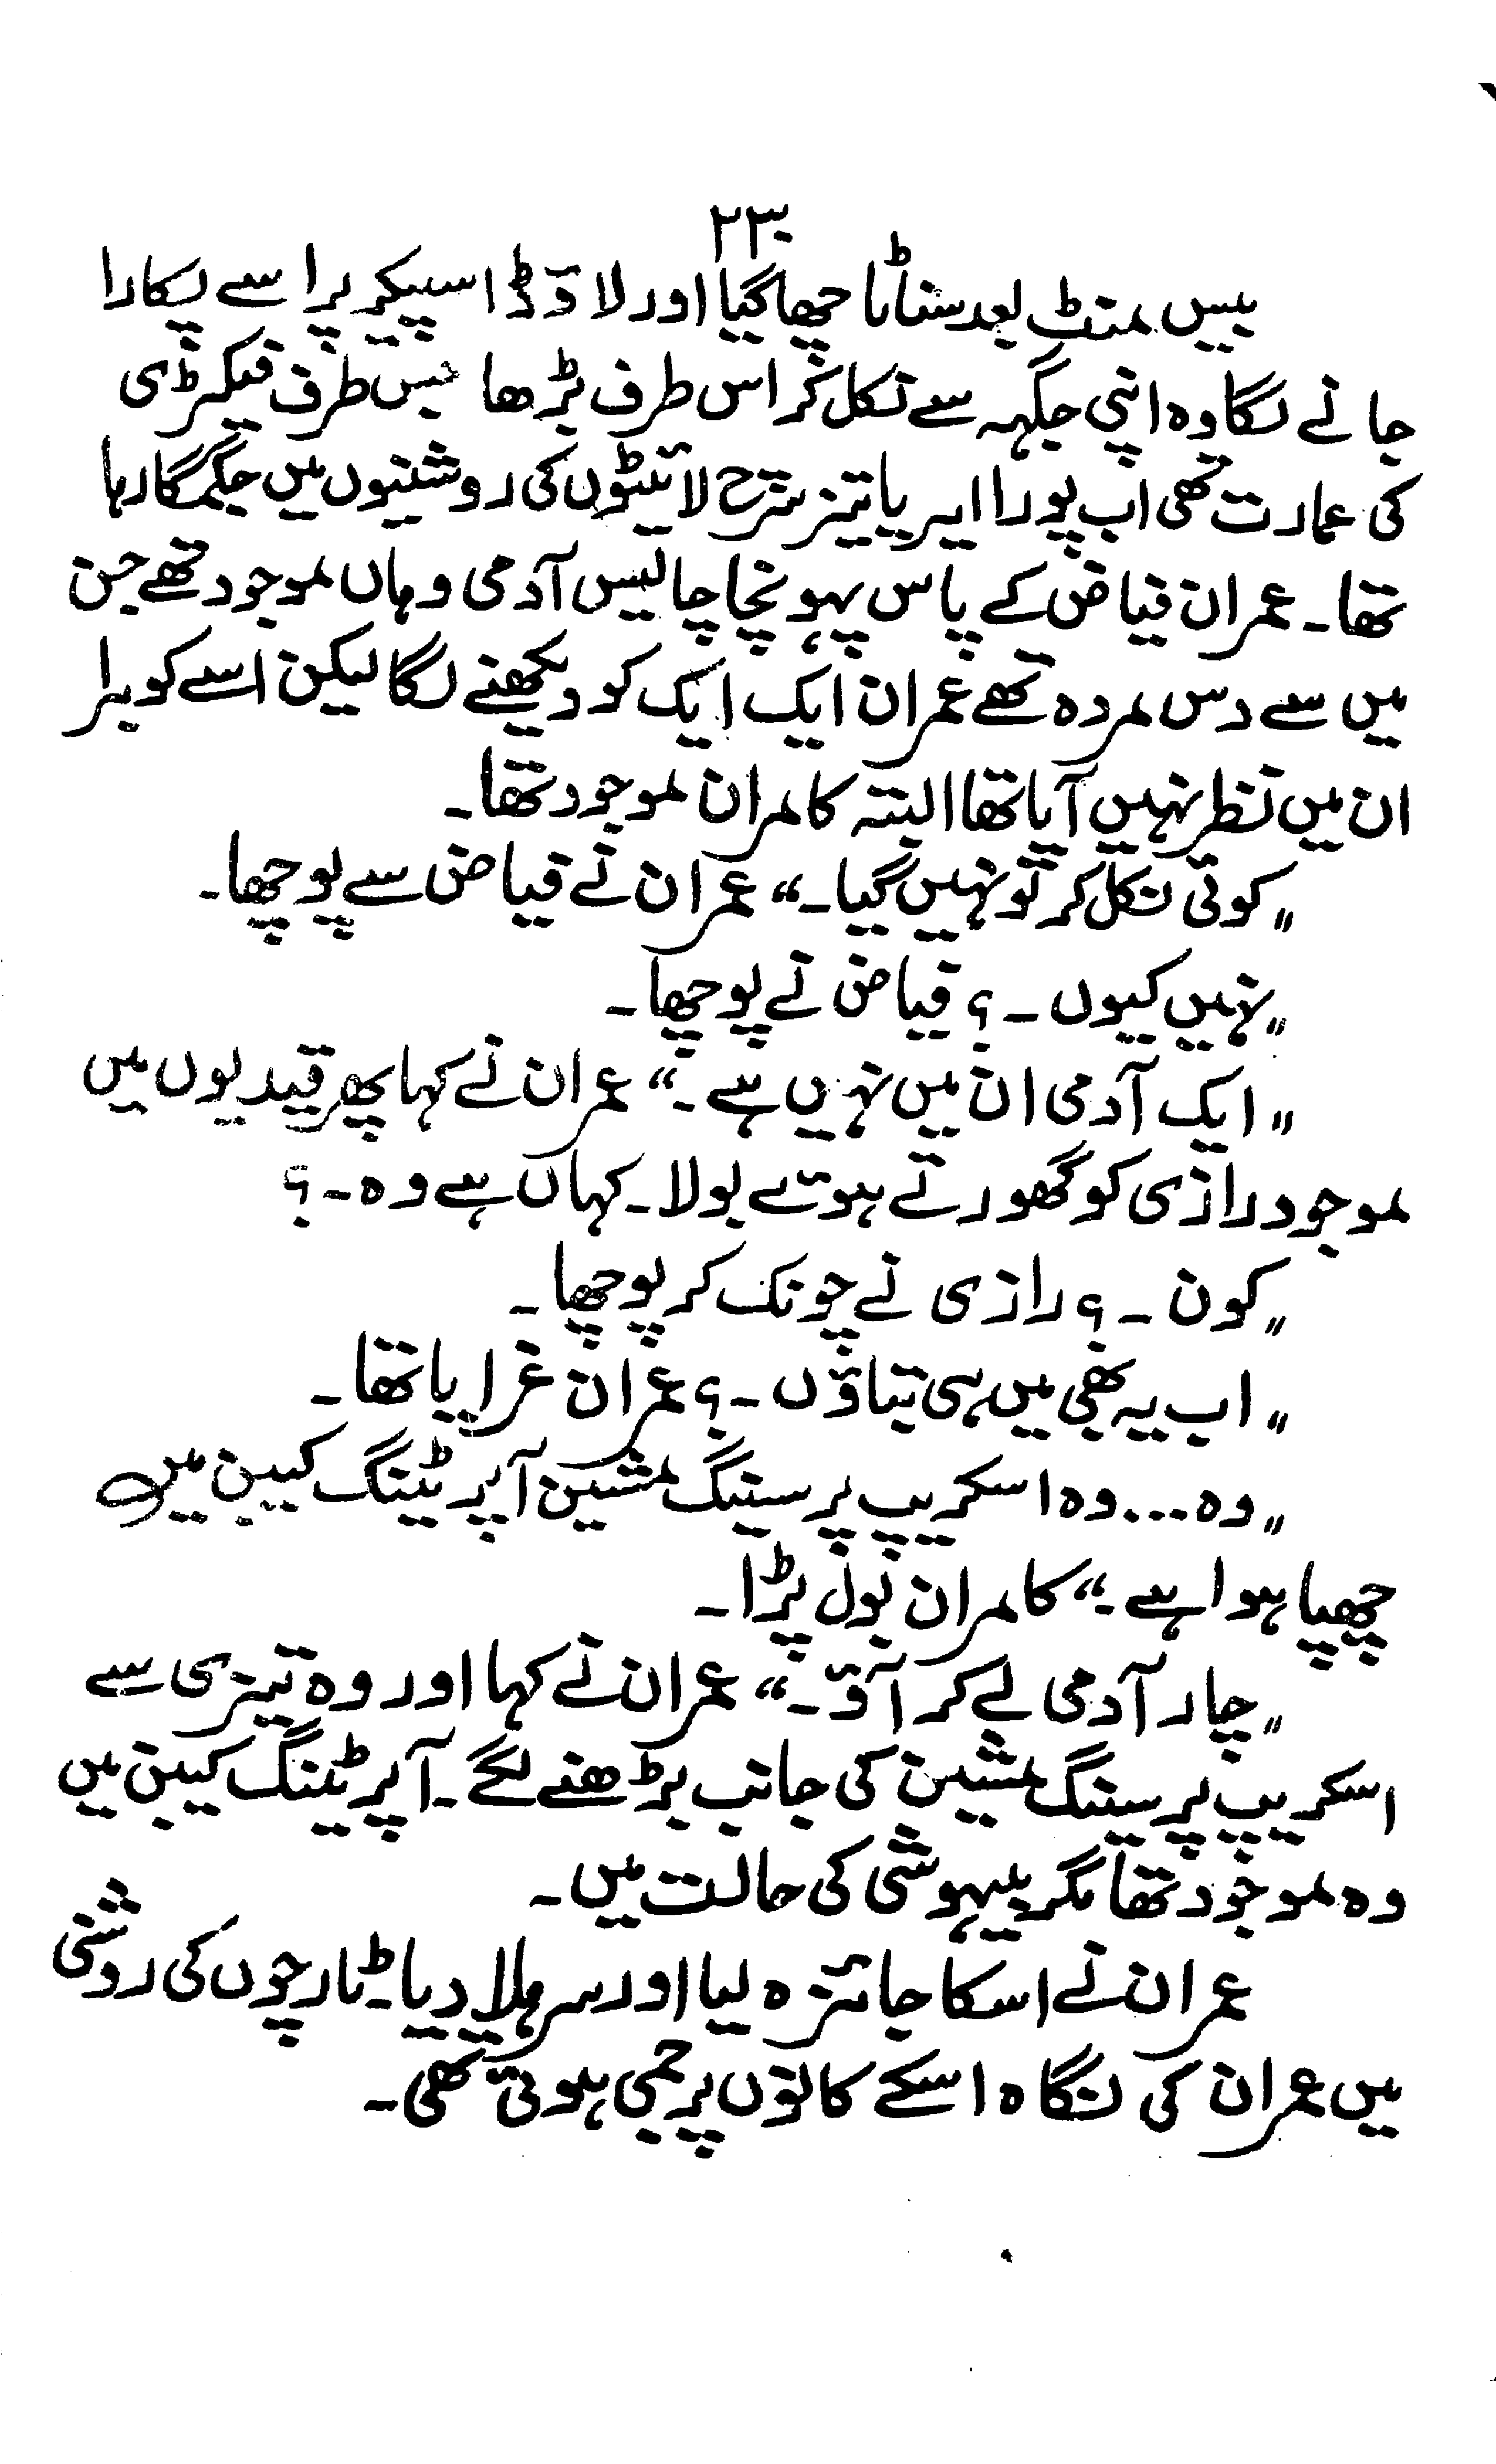 ۲۳۰
بیس منٹ بعد سناٹا چھا گیا اور لاؤڈ اسپیکر پر اسے پکارا
جانے لگا وہ اپنی جگہہ سے نکل کر اس طرف بڑھا جس طرف فیکڑی
کی عمارت تھی اب پورا ایریا تیز سرچ لائیٹوں کی روشنیوں میں جگمگا رہا
تھا۔ عمران فیاض کے پاس پہونچا چالیس آدمی وہاں موجود تھے جن
میں سے دس مردہ تھے عمران ایک ایک کو دیکھنے لگا لیکن اسے کوبرا
ان میں نظر نہیں آیا تھا البتہ کامران موجود تھا۔
"کوئی نکل کر تو نہیں گیا۔" عمران نے فیاض سے پوچھا۔
"نہیں کیوں ۔؟ فیاض نے پوچھا۔
"ایک آدمی ان میں نہیں ہے۔" عمران نے کہا پھر قیدیوں میں
موجود رازی کو گھورتے ہوئے بولا۔ کہاں ہے وہ۔؟
"کون ۔؟ رازی نے چونک کر پوچھا۔
"اب یہ بھی میں ہی بتاؤں ۔؟ عمران غرایا تھا۔
"وہ...وہ اسکریپ پرسینگ مشین آپریٹینگ کیبن میں
چھپا ہوا ہے۔" کامران بول پڑا۔
"چار آدمی لے کر آؤ۔" عمران نے کہا اور وہ تیزی سے
اسکریپ پرسینگ مشین کی جانب بڑھنے لگے۔ آپرٹینگ کیبن میں
وہ موجود تھا مگر بیہوشی کی حالت میں۔
عمران نے اسکا جائزہ لیا اور سر ہلا دیا۔ ٹارچوں کی روشنی
میں عمران کی نگاہ اسکے کانوں پر جمی ہوئی تھی۔